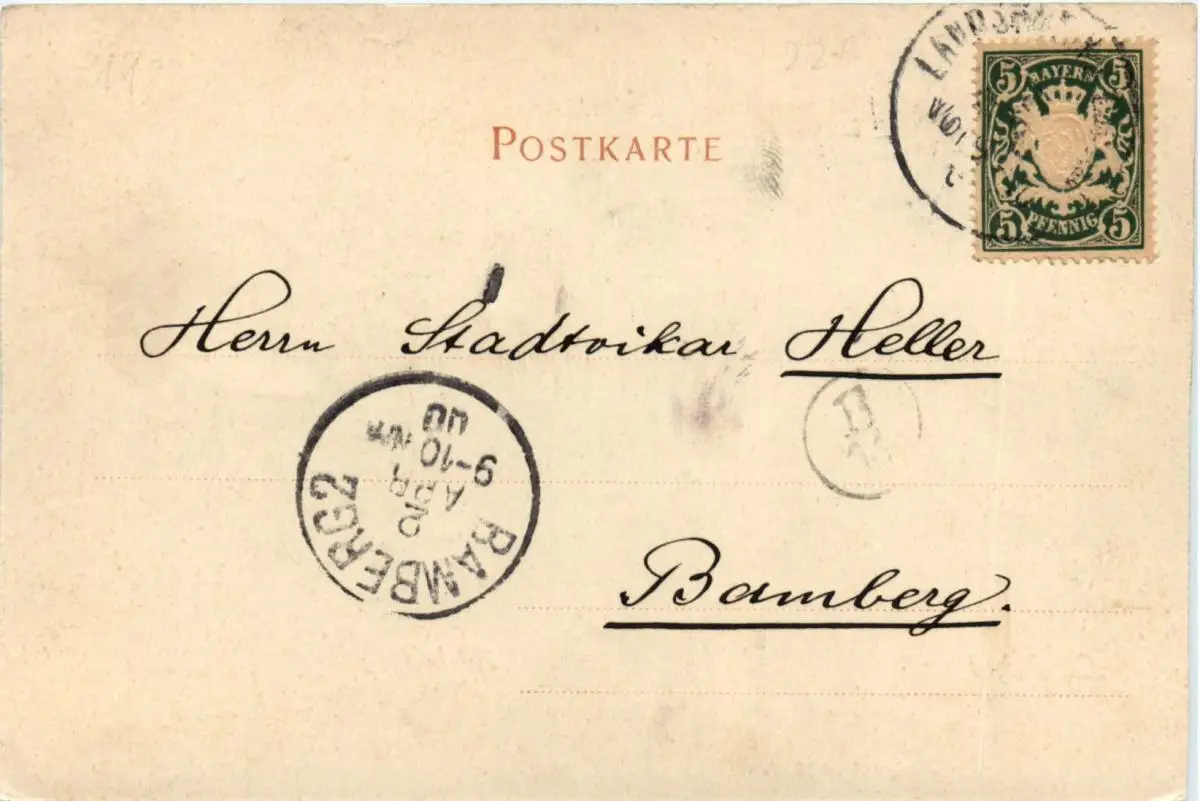 POSTKARTE
5 BAYERN 5
5 PFENNIG 5
Herrn Stadtvikar Heller
Bamberg.
BAMBERG 2
2
APR
9-10 NM
00